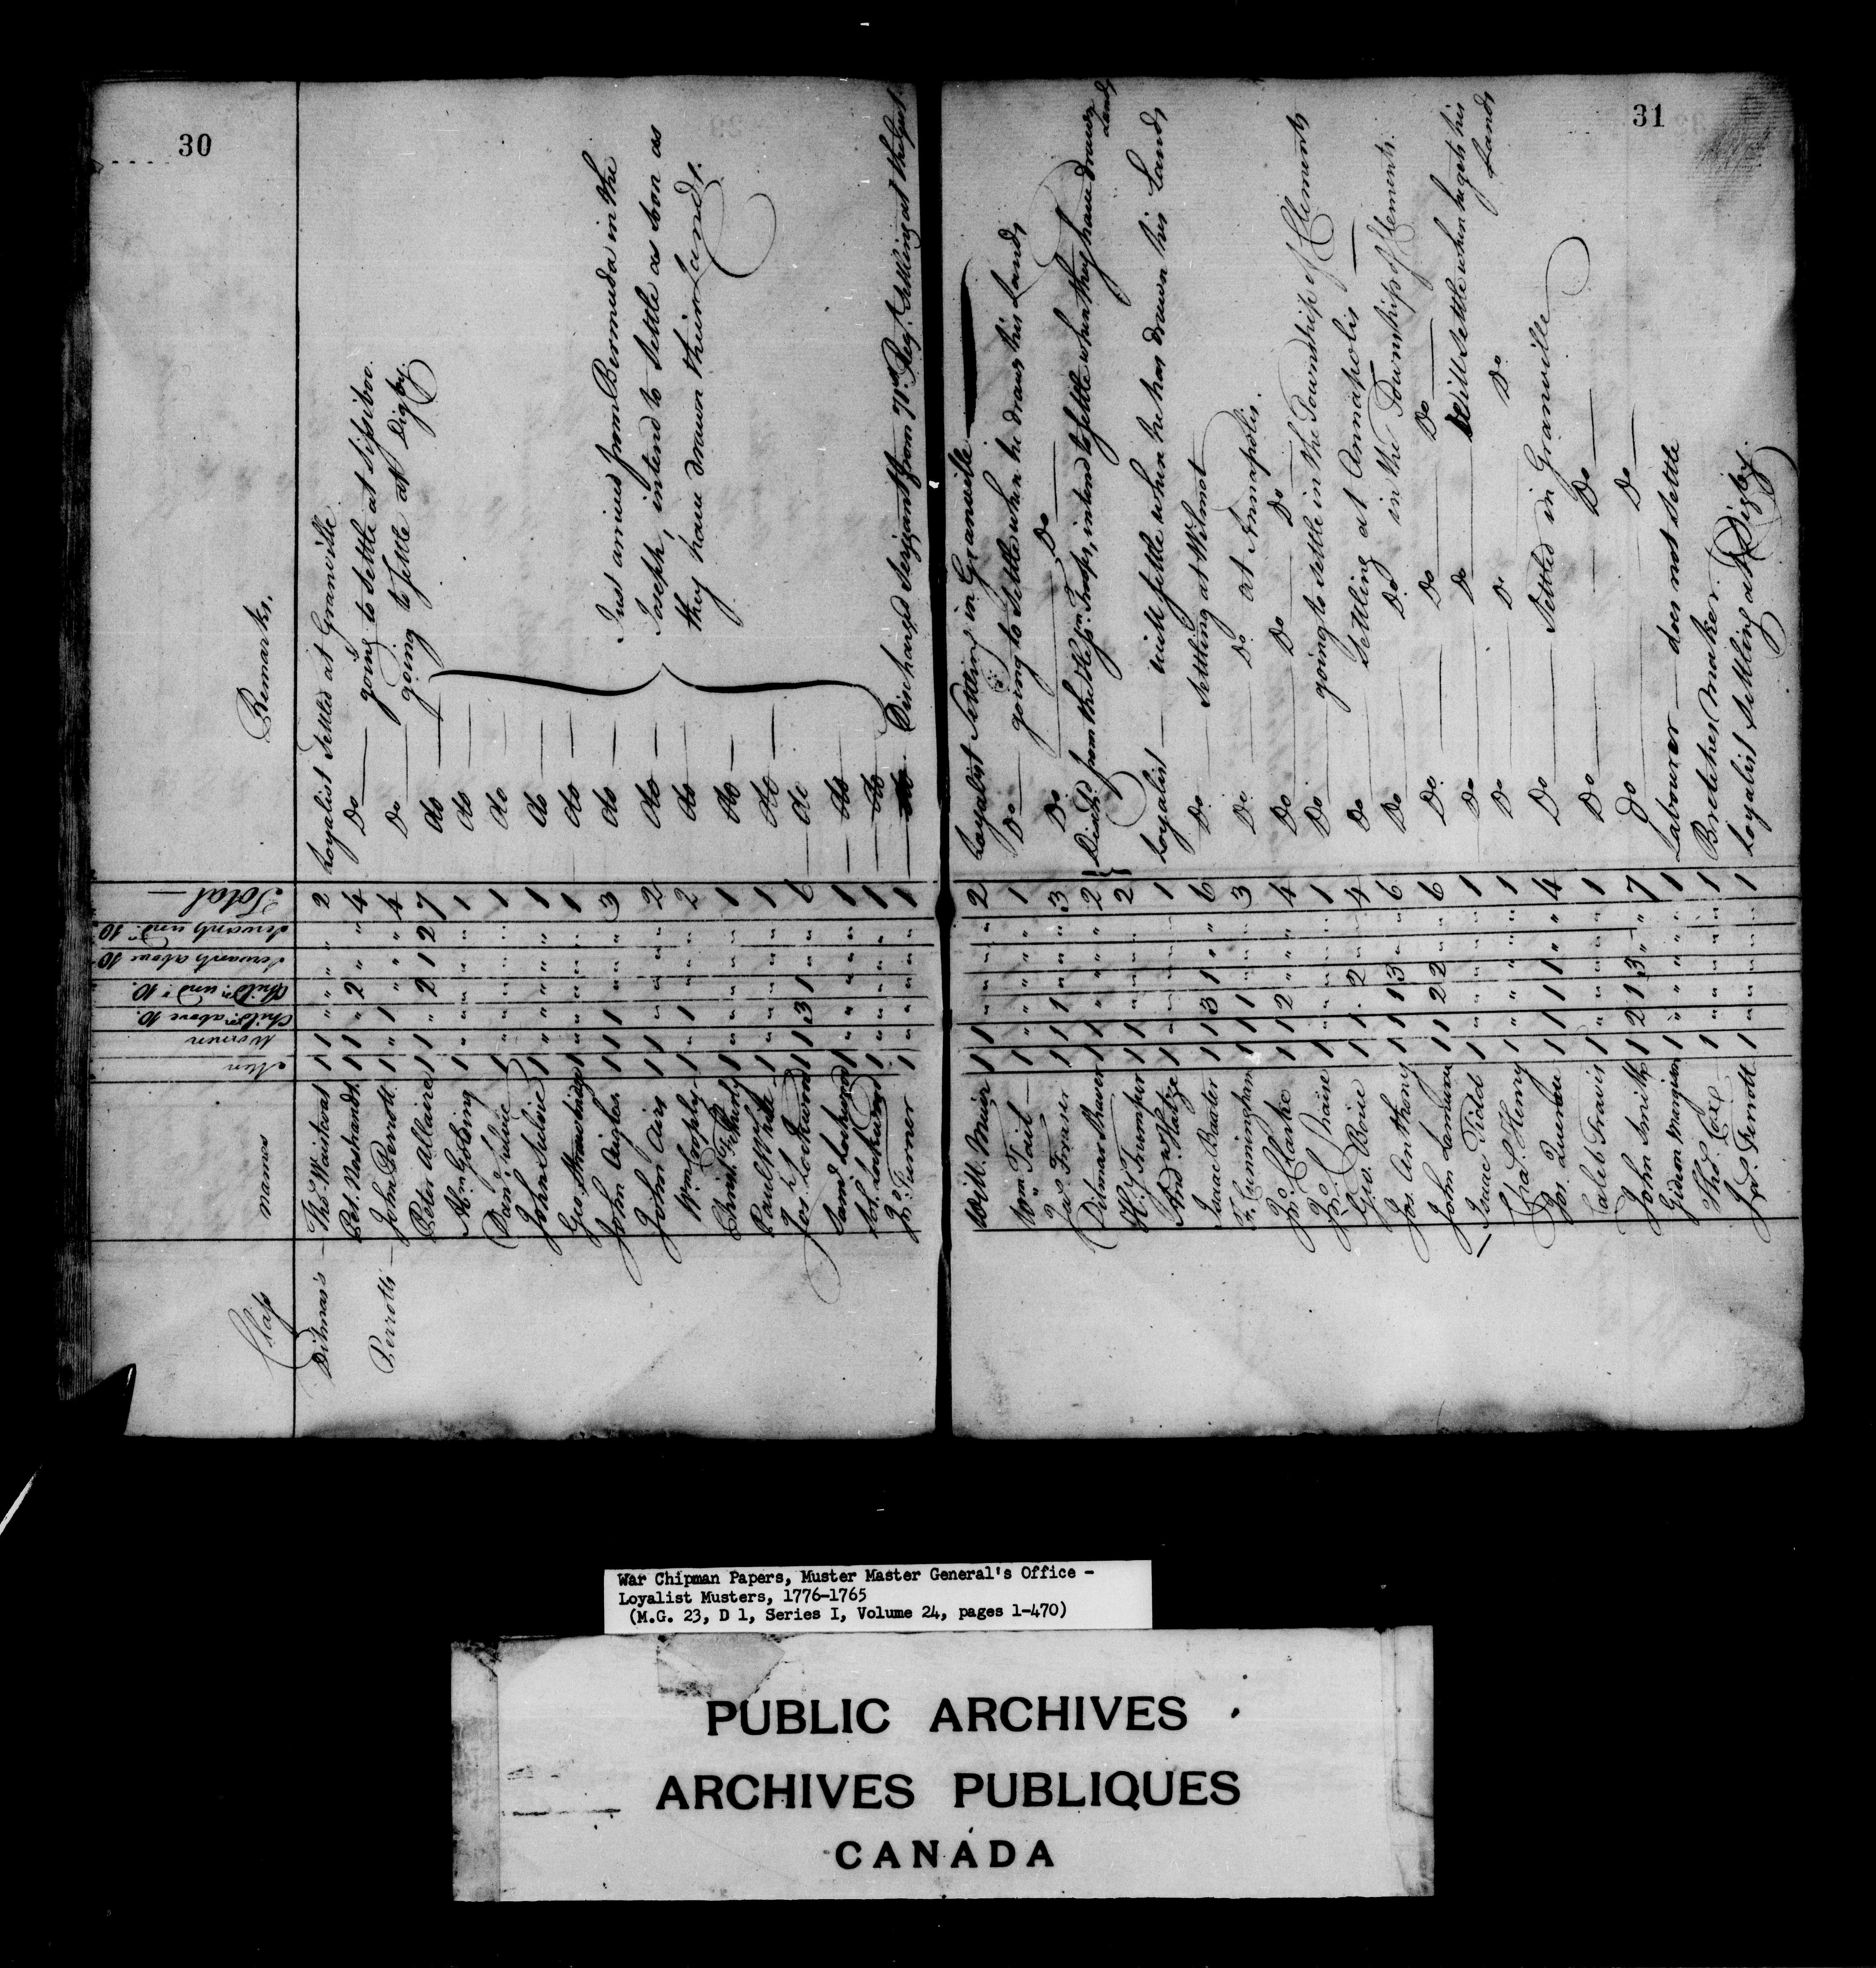 30
Class names Men Women Child.n above 10. Child.n und.r 10. Servants above 10 Servants und.r 10 Total Remarks.
Ditmars — Tho.s Waistcoat 1 1 " " " " 2 Loyalist Settled at Granville
Pet. Vashandt 1 1 " 2 " " 4 Do — going to settle at Sissiboo.
Perrotts — John Perrott 1 " 1 4 Do going to settle at Digby.
Peter Allaire 1 1 " 2 1 2 7 do
Ab.m Gosling 1 " " " " " 1 do —
Dan.l Julvie 1 " " " " " 1 do —
John Selvie 1 " " " " " 1 do —
Geo. Strawbridge 1 " " " " " 1 do —
John Aigher 1 1 1 " " " 3 do —
John Airs 1 1 " " " " 2 do —
Wm Cooply 1 " 1 " " " 2 do —
Christ. 1 " " " " " 1 do —
Paul White 1 " " " " " 1 do —
Jos. Lockwood 1 1 3 1 " " 6 do
Sam.l Lockwood 1 " " " " " 1 — do
Jos. Lockwood 1 " " " " " 1 — do
Just arrived from Bermuda in the
Joseph, intend to settle as soon as
they have drawn their Lands.
Jno. Turner 1 " " " " " 1 — Discharged Serjeant from 71.st Reg.t Settling at the Gut
31
Will.m Muir 1 1 " " " " 2 Loyalist Settling in Granville —
Wm. Tait — 1 " " " " " 1 Do — going to Settle when he draws his Lands
Jas. Fraser 1 1 1 " " " 3 Do. Do —
Ditmar Shaver 1 1 " " " " 2
H.y Trumpur 1 1 " " " " 2
Disch.d from the Hess.n Troops, intend to settle when they have drawn Lands
And. Hatze 1 " " " " " 1 Loyalist — will settle when he has drawn his Lands
Isaac Baxter 1 1 3 1 " " 6 Do. — Settling at Wilmot
F. Cunningham 1 1 1 " " " 3 Do. Do. at Annapolis.
Jno. Clarke 1 1 2 " " " 4 Do Do Do
Jno. Chaise 1 " " " " " 1 Do going to settle in the Township of Clements
Geo. Boice 1 1 . 2 " " 4 Do Settling at Annapolis —
Jos. Anthony 1 1 1 3 " " 6 Do Do. in the Township of Clements.
John Lamoreu 1 1 2 2 " " 6 Do. Do Do —
Isaac Tidd 1 " " " " " 1 Do Do Will settle when he gets his Lands
Ja.s Henry 1 " " " " " 1 Do Do Do
Jos. Quereau 1 1 1 1 " " 4 Do — Settled in Granville
Caleb Travis 1 " " " " " 1 Do — Do —
John Smith 1 2 1 3 " " 7 Do — Do —
Gideon Mangion 1 " " " " " 1 Labourer — does not settle
Tho.s Cox — 1 " " " " " 1 Breeches Maker.
Ja.s Perrott 1 " " " " " 1 Loyalist Settling at Digby.
War Chipman Papers, Muster Master General's Office -
Loyalist Musters, 1776-1765
(M.G. 23, D 1, Series I, Volume 24, pages 1-470)
PUBLIC ARCHIVES
ARCHIVES PUBLIQUES
CANADA